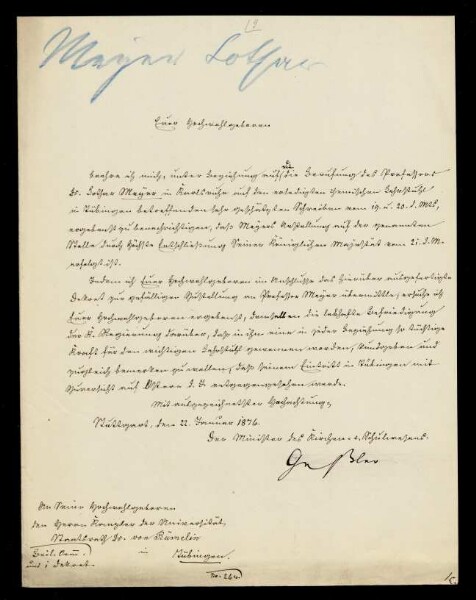 19
Meyer Lothar
Euer Hochwohlgeboren
beehre ich mich, unter Beziehung auf die die Berufung des Professors
Dr. Lothar Meyer in Karlsruhe auf den erledigten chemischen Lehrstuhl
in Tübingen betreffenden sehr geschätzten Schreiben vom 19. u. 20. d. Mts.,
ergebenst zu benachrichtigen, daß Meyers Anstellung auf der genannten
Stelle durch Höchste Entschließung Seiner Königlichen Majestät vom 21. d. M.
erfolgt ist.
Indem ich Euer Hochwohlgeboren im Anschlusse das hierüber ausgefertigte
Dekret zur gefälligen Zustellung an Professor Meyer übermittle, ersuche ich
Euer Hochwohlgeboren ergebenst, demselben die lebhafte Befriedigung
der K. Regierung darüber, daß in ihm eine in jeder Beziehung so tüchtige
Kraft für den wichtigen Lehrstuhl gewonnen worden, kundgeben und
zugleich bemerken zu wollen, daß seinem Eintritt in Tübingen mit
Zuversicht auf Ostern d. J. entgegengesehen werde.
Mit ausgezeichnetster Hochachtung,
Stuttgart, den 22. Januar 1876.
Der Minister des Kirchen- u. Schulwesens.
Geßler
An Seine Hochwohlgeboren
den Herrn Kanzler der Universität,
Staatsrath Dr. von Rümelin
in
Tübingen.
und 1 Dekret.
No. 264.